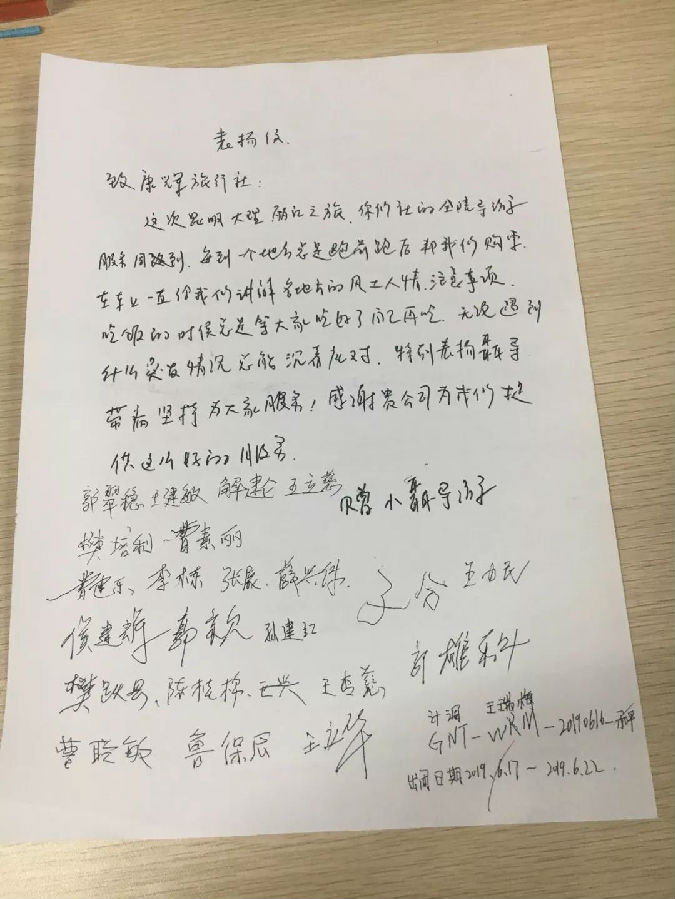 表扬信
致康辉旅行社:
这次昆明大理丽江之旅,你们社的全陪导游
服务周到,每到一个地方总是跑前跑后帮我们购票,
在车上一直给我们讲解各地方的风土人情,注意事项,
吃饭的时候总是等大家吃好了自己再吃,无论遇到
什么突发情况总能沉着应对,特别表扬聂导
带病坚持为大家服务!感谢贵公司为我们提
供这么好的服务.
郭翠稳 王建敏 解建伦 王立慧
赠小聂导游
樊培利 曹素丽
李栋 张晨 薛
侯建 郭 孙建红
王力民
樊 陈桂 王兴 王杏慧
曹聪敏 鲁保 王立华
计调 王瑞辉
GNT-WRM-20190616
出团日期2019.6.17~2019.6.22.